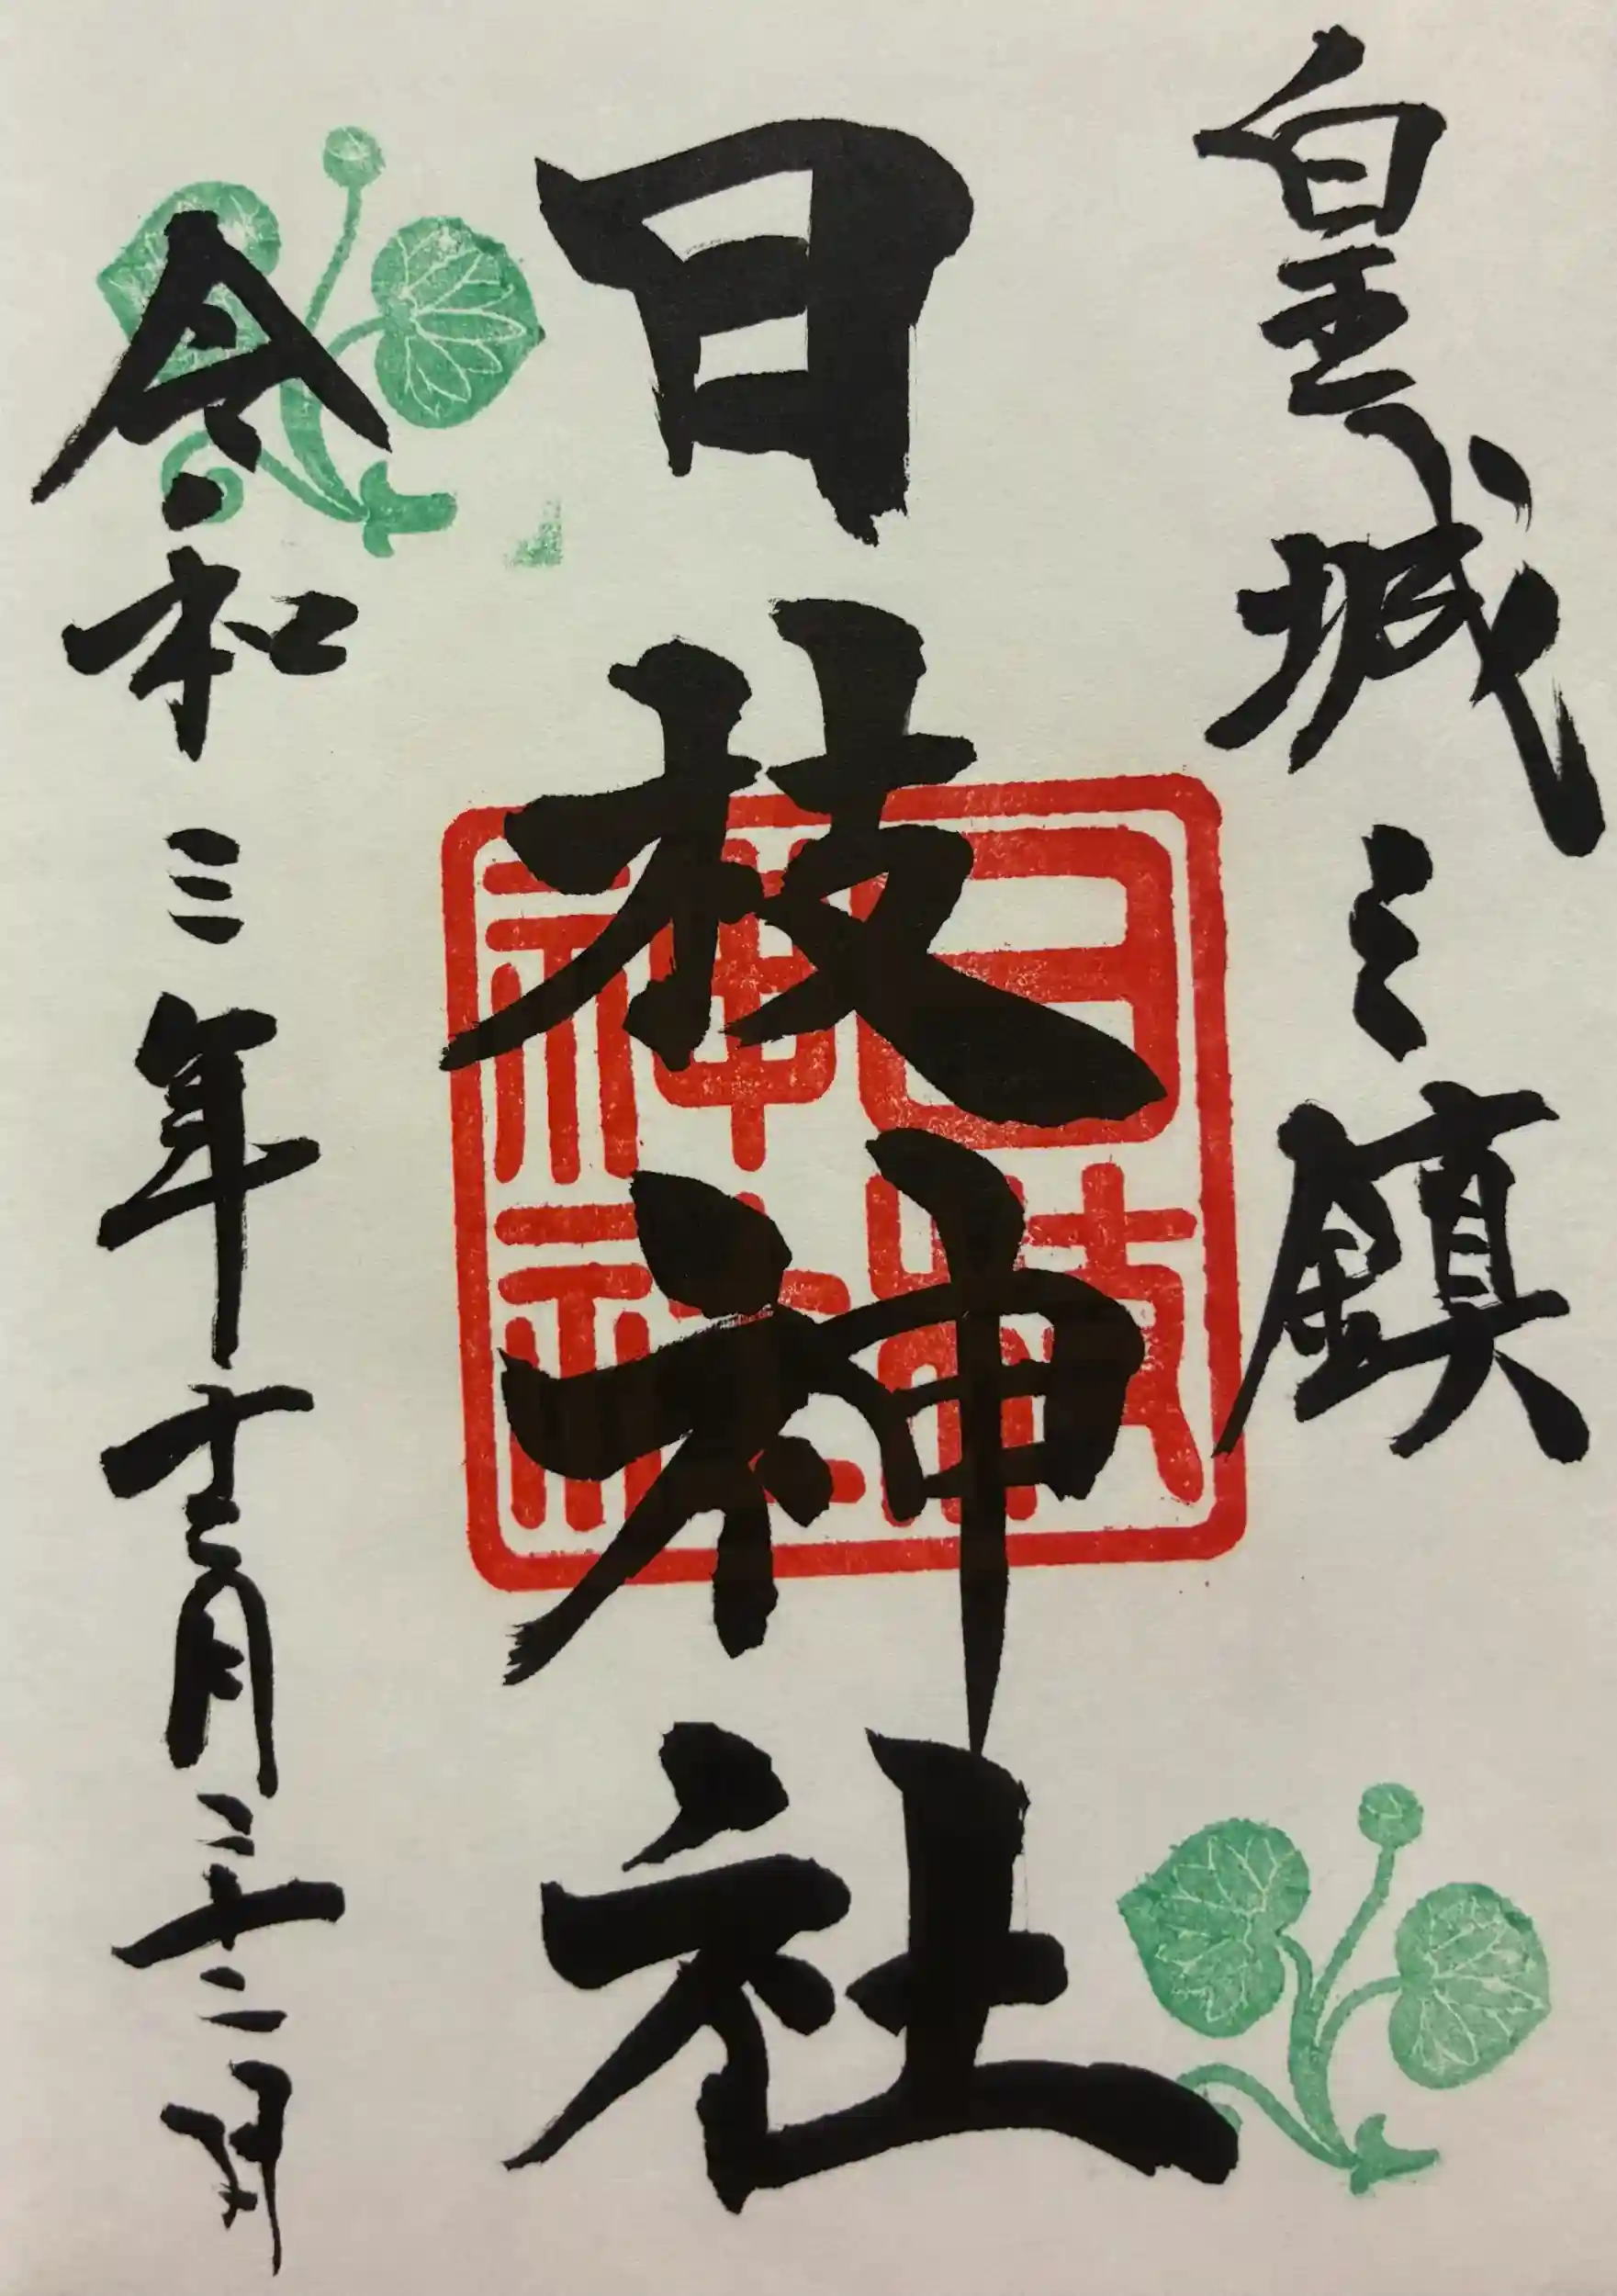 皇城之鎮
日枝神社
令和三年十二月二十二日
日枝
神社